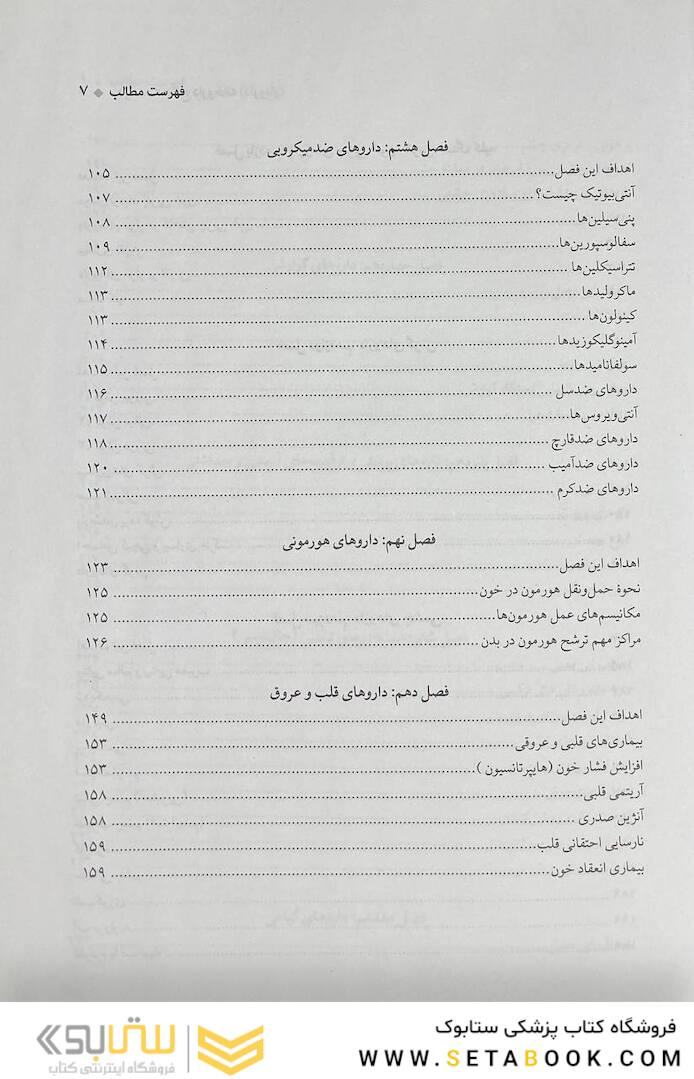 فهرست مطالب ◆ ۷
فصل هشتم: داروهای ضدمیکروبی
اهداف این فصل ........ ۱۰۵
آنتی‌بیوتیک چیست؟ ........ ۱۰۷
پنی‌سیلین‌ها ........ ۱۰۸
سفالوسپورین‌ها ........ ۱۰۹
تتراسیکلین‌ها ........ ۱۱۲
ماکرولیدها ........ ۱۱۳
کینولون‌ها ........ ۱۱۳
آمینوگلیکوزیدها ........ ۱۱۴
سولفانامیدها ........ ۱۱۵
داروهای ضدسل ........ ۱۱۶
آنتی‌ویروس‌ها ........ ۱۱۷
داروهای ضدقارچ ........ ۱۱۸
داروهای ضدآمیب ........ ۱۲۰
داروهای ضدکرم ........ ۱۲۱
فصل نهم: داروهای هورمونی
اهداف این فصل ........ ۱۲۳
نحوۀ حمل‌ونقل هورمون در خون ........ ۱۲۵
مکانیسم‌های عمل هورمون‌ها ........ ۱۲۵
مراکز مهم ترشح هورمون در بدن ........ ۱۲۶
فصل دهم: داروهای قلب و عروق
اهداف این فصل ........ ۱۴۹
بیماری‌های قلبی و عروقی ........ ۱۵۳
افزایش فشار خون (هایپرتانسیون) ........ ۱۵۳
آریتمی قلبی ........ ۱۵۸
آنژین صدری ........ ۱۵۸
نارسایی احتقانی قلب ........ ۱۵۹
بیماری انعقاد خون ........ ۱۵۹
فروشگاه کتاب پزشکی ستابوک
WWW.SETABOOK.COM
ستابوک
فروشگاه اینترنتی کتاب